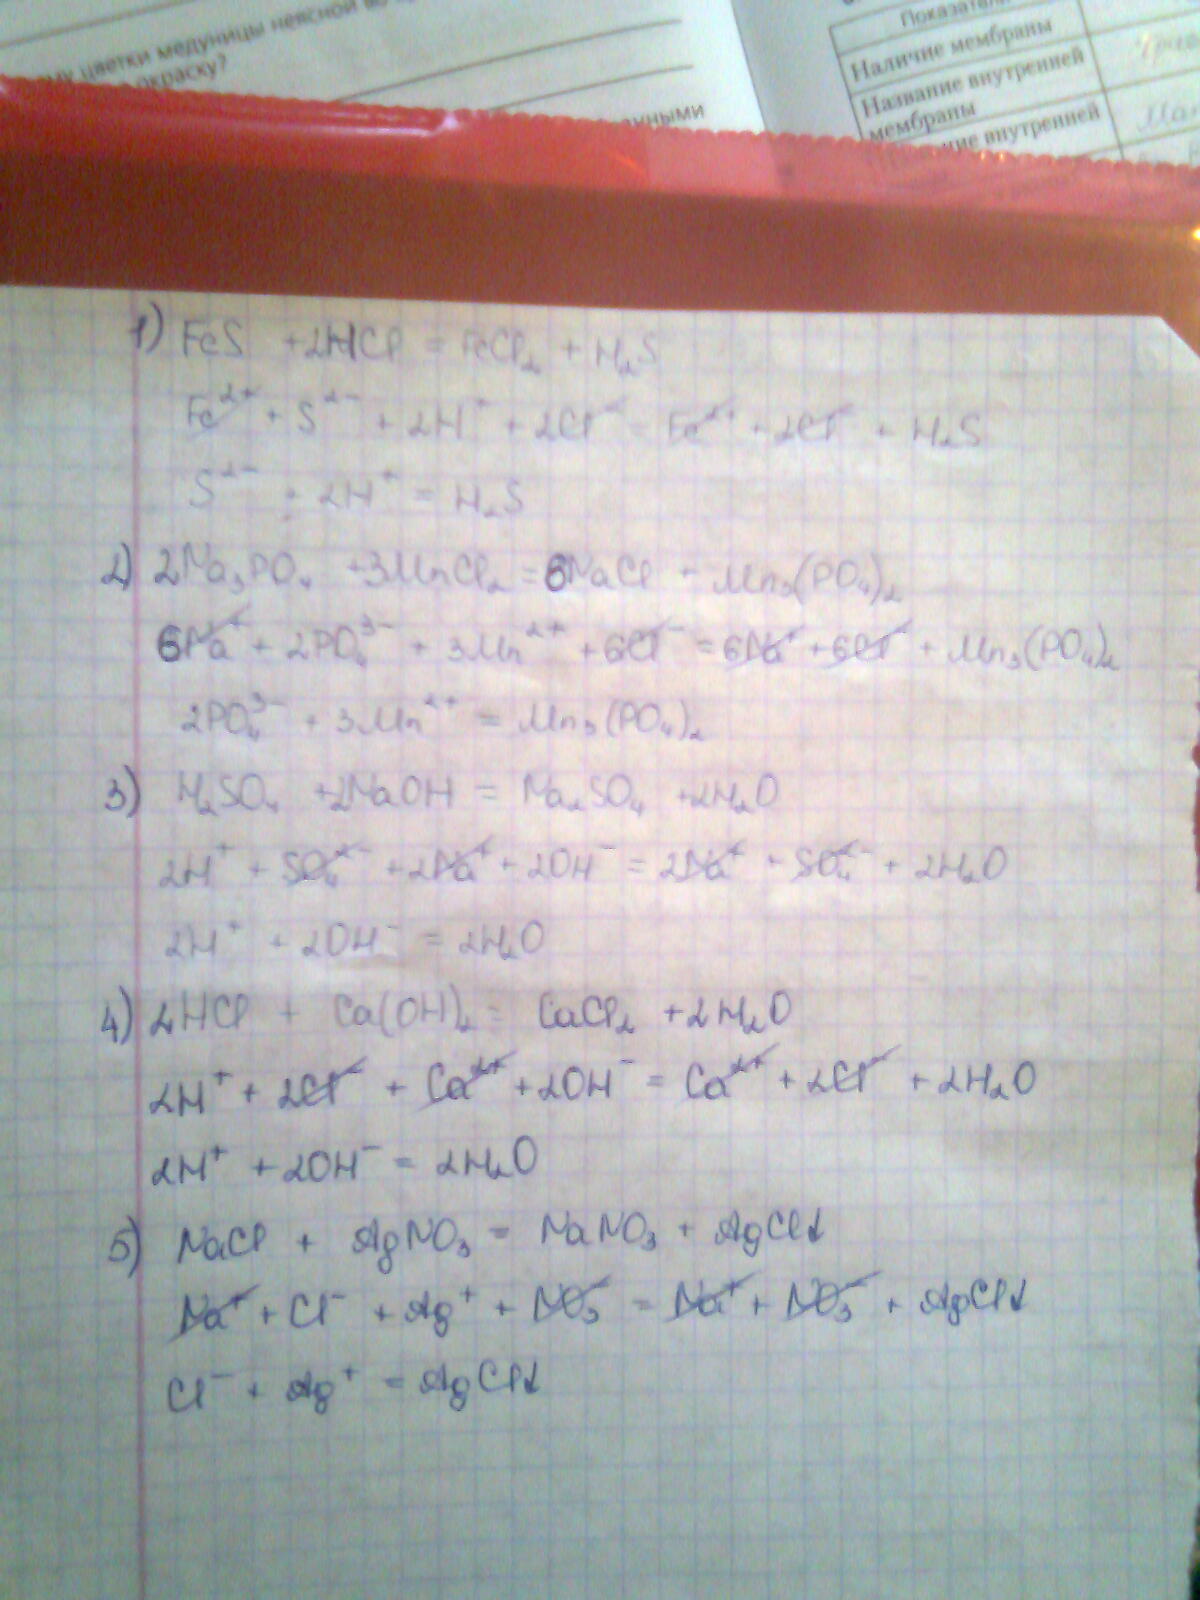 цветки медуницы неясной
окраску?
Показатели
Наличие мембраны
Название внутренней
мембраны
внутренней
1) FeS + 2HCl = FeCl₂ + H₂S
Fe²⁺ + S²⁻ + 2H⁺ + 2Cl⁻ = Fe²⁺ + 2Cl⁻ + H₂S
S²⁻ + 2H⁺ = H₂S
2) 2Na₃PO₄ + 3MnCl₂ = 6NaCl + Mn₃(PO₄)₂
6Na⁺ + 2PO₄³⁻ + 3Mn²⁺ + 6Cl⁻ = 6Na⁺ + 6Cl⁻ + Mn₃(PO₄)₂
2PO₄³⁻ + 3Mn²⁺ = Mn₃(PO₄)₂
3) H₂SO₄ + 2NaOH = Na₂SO₄ + 2H₂O
2H⁺ + SO₄²⁻ + 2Na⁺ + 2OH⁻ = 2Na⁺ + SO₄²⁻ + 2H₂O
2H⁺ + 2OH⁻ = 2H₂O
4) 2HCl + Ca(OH)₂ = CaCl₂ + 2H₂O
2H⁺ + 2Cl⁻ + Ca²⁺ + 2OH⁻ = Ca²⁺ + 2Cl⁻ + 2H₂O
2H⁺ + 2OH⁻ = 2H₂O
5) NaCl + AgNO₃ = NaNO₃ + AgCl↓
Na⁺ + Cl⁻ + Ag⁺ + NO₃⁻ = Na⁺ + NO₃⁻ + AgCl↓
Cl⁻ + Ag⁺ = AgCl↓